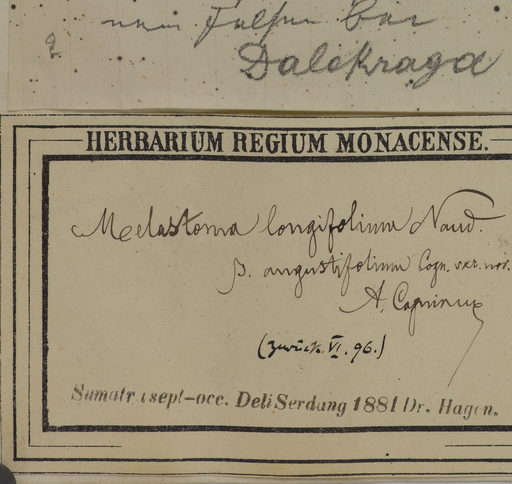 Dalekraga
HERBARIUM REGIUM MONACENSE.
Melastoma longifolium Naud.
β. angustifolium Cogn. var. nov.
A. Cogniaux
(zurück. VI. 96.)
Sumatra sept-occ. Deli Serdang 1881 Dr. Hagen.